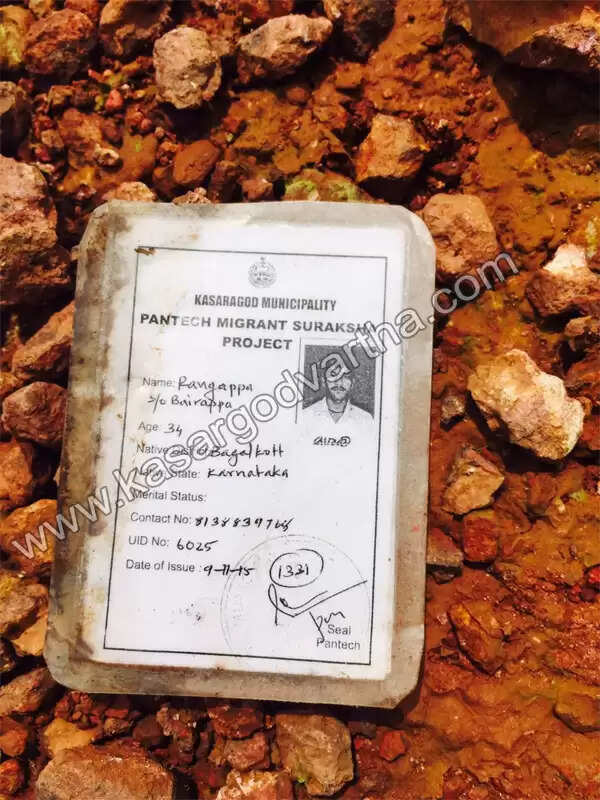 KASARAGOD MUNICIPALITY
PANTECH MIGRANT SURAKSHA
PROJECT
Name: Rangappa
S/o Bairappa
Age: 34
Native Bagalkott
State: Karnataka
Merital Status:
Contact No:
UID No: 6025
Date of Issue : 9-11-15
1331
Seal
Pantech
www.kasargodvartha.com